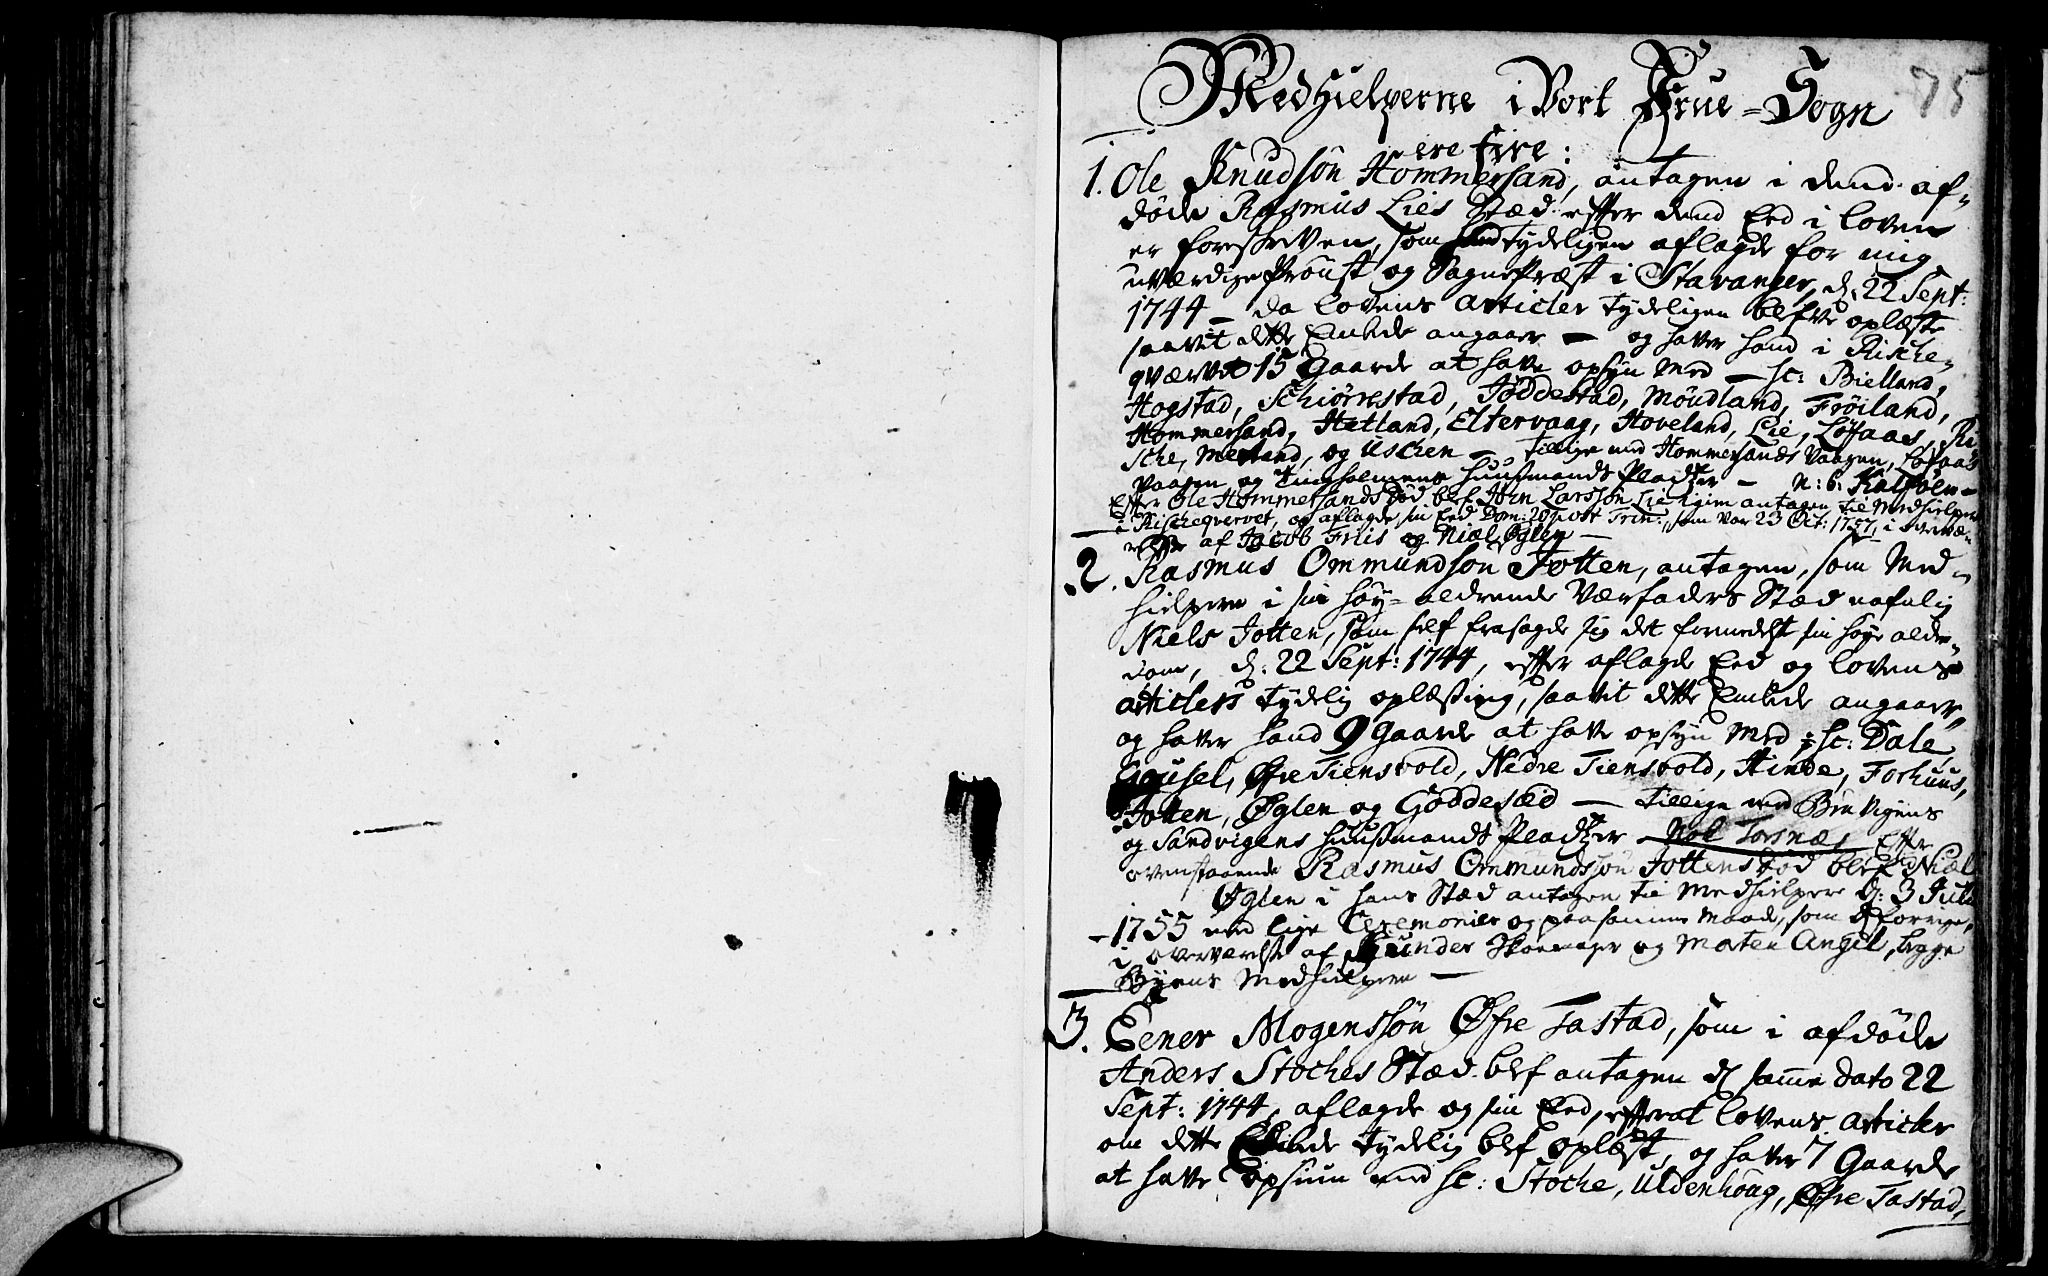 75
Medhielperne i Vort Frue-Sogn
ere fire:
1. Ole Knudsøn Hommersand, antagen i dend af-
døde Rasmus Lies Stæd efter dend Eed i loven
er foreskreven, som hand tydeligen aflagde for mig
uværdige Proust og SognePræst i Stavanger, d. 22 Sept:
1744 — da lovens Articler tydeligen blefve oplæste
saavit dette Embede angaaer — og haver hand i Rische-
qværvet 15 Gaarde at have opsyn med — sc: Bielland,
Hogstad, Schiørrestad, Jøddestad, Møudland, Frøiland,
Hommersand, Hetland, Eltervaag, Hoveland, Lie, Løfaas, Ri
sche, Meeland, og Uschen — tillige med Hommersands Vaagen, Løfaas
Vaagen og Tingholmens Huusmands Pladtzer — N:b:
Efter Ole Hommersands Død blef John Larssøn Lie igien antagen til Medhielper
i Rischeqvervet, og aflagde sin Eed Dom: 20 post Trin:, som var 23 Oct: 1757, i overvæ-
relse af Jacob Friis og Niæl Øglen —
2. Rasmus Ommundsøn Jotten, antagen, som Med-
hielpere i sin høy-aldrende Værfaders Stæd nafnlig
Niels Jotten, som self frasagde sig det formedelst sin høye alder-
dom, d. 22 Sept: 1744, efter aflagde Eed og lovens
Articlers tydelig oplæsning, saavit dette Embede angaaer
og haver hand 9 Gaarde at have opsyn med sc: Dale
Gousel, Øfre Tiensvold, Nedre Tiensvold, Hinde, Forhuus,
Jotten, Øglen og Goddesæd — tillige med Brevigens
og Sandvigens Huusmands Pladtzer Nok Torsnæs Efter
ovenstaaende Rasmus Ommundssøn Jottens Død blef Niæl
Øglen i hans Stæd antagen til Medhielpere d: 3 Juli
1755 med lige Ceremonier og paa samme Maade, som d forrige,
i overværelse af Gunder Skomager og Morten Angel, begge
Byens Medhielpere —
3. Eener Mogenssøn Øfre Tastad, som i afdøde
Anders Stoches Stæd blef antagen d samme dato 22
Sept: 1744, aflagde og sin Eed, efter at lovens Articler
om dette Embede tydelig blef oplæst, og haver 7 Gaarde
at have Opsiun med sc: Stoche, Uldenhoug, Øfre Tastad,